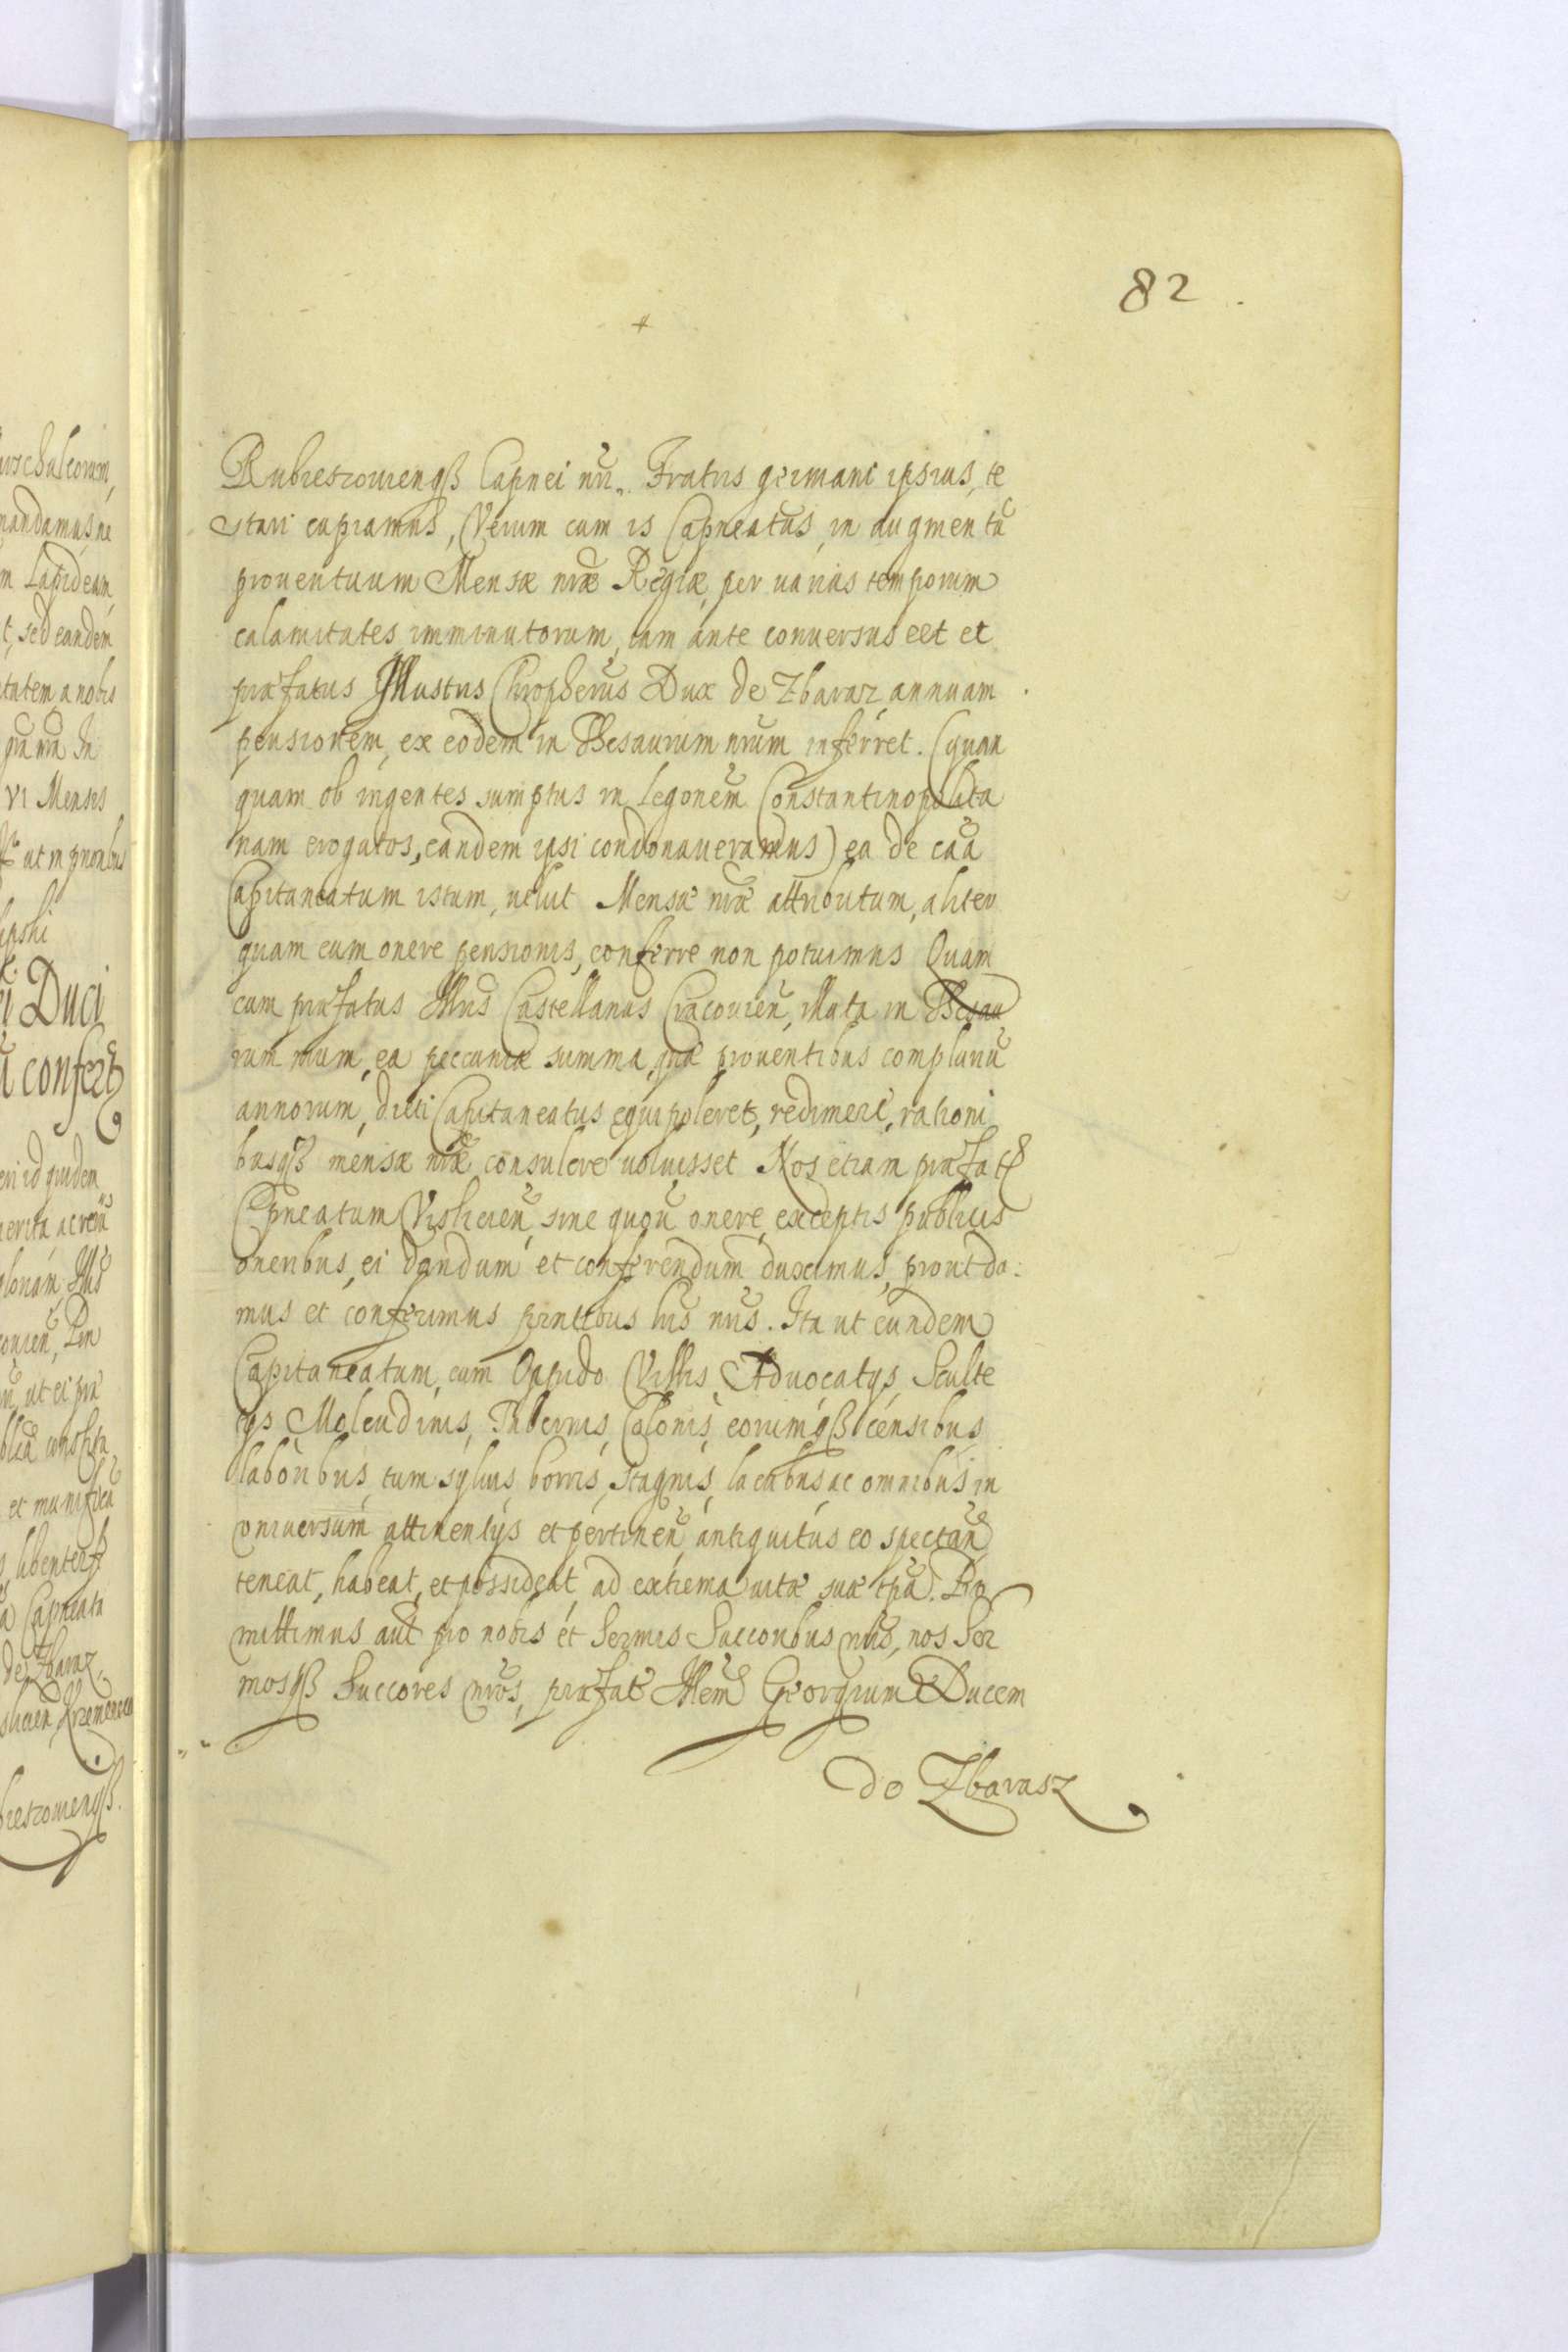 82
Rubieszoviensqß Capnei nri. Fratris germani ipsius, te
stari cupiamus, Verum cum is Capneatus, in augmentũ
proventuum Mensæ nræ Regiæ, per varias temporum
calamitates imminutorum, iam ante conversus eēt et
præfatus Illustris Chrpherus Dux de Zbaraz annuam
pensionem, ex eodem in Thesaurum nrum inferret. (quan
quam ob ingentes sumptus in legonem Constantinopolita
nam erogatos, eandem ipsi condonaveramus) ea de caã
Capitaneatum istum, velut Mensæ nræ attributum, aliter
quam cum onere pensionis, conferre non potuimus Quam
cum præfatus Illris Castellanus Cracovien, illata in Thesau
rum nrum, ea peccuniæ summa, quæ proventibus complurũ
annorum, dicti Capitaneatus equipoleret, redimere, rationi
busqß mensæ nræ consulere voluisset Nos etiam præfat
Cpneatum Visliciēn, sine quovi onere, exceptis publicis
oneribus, ei dandum et conferendum duximus, prout da:
mus et conferimus pntibus lris nris. Ita ut eundem
Capitaneatum, cum Oppido Villis, Advocatys, Sculte
tys Molendinis, Tabernis, Colonis, eorumqß censibus
laboribus, tum sylvis, borris, stagnis, lacubus ac omnibus in
universum attinentys et pertinen, antiquitus eo spectan
teneat, habeat, et possideat, ad extrema vitæ suæ tpa. Pro
mittimus aut pro nobis et Sermis Succoribus nris, nos Ser
mosqß Succores nros, præfat Illem Georgium Ducem
do Zbarasz
marschalcorum,
mandamus, ne
m Lapideam
t, sed eandem
a nobis
In
VI Mensis
ut in prioribus
ei Duci
confert
eri id quidem
ac
ut ei præ
et munifica
libenterqß
Capneatu
de Zbaraz